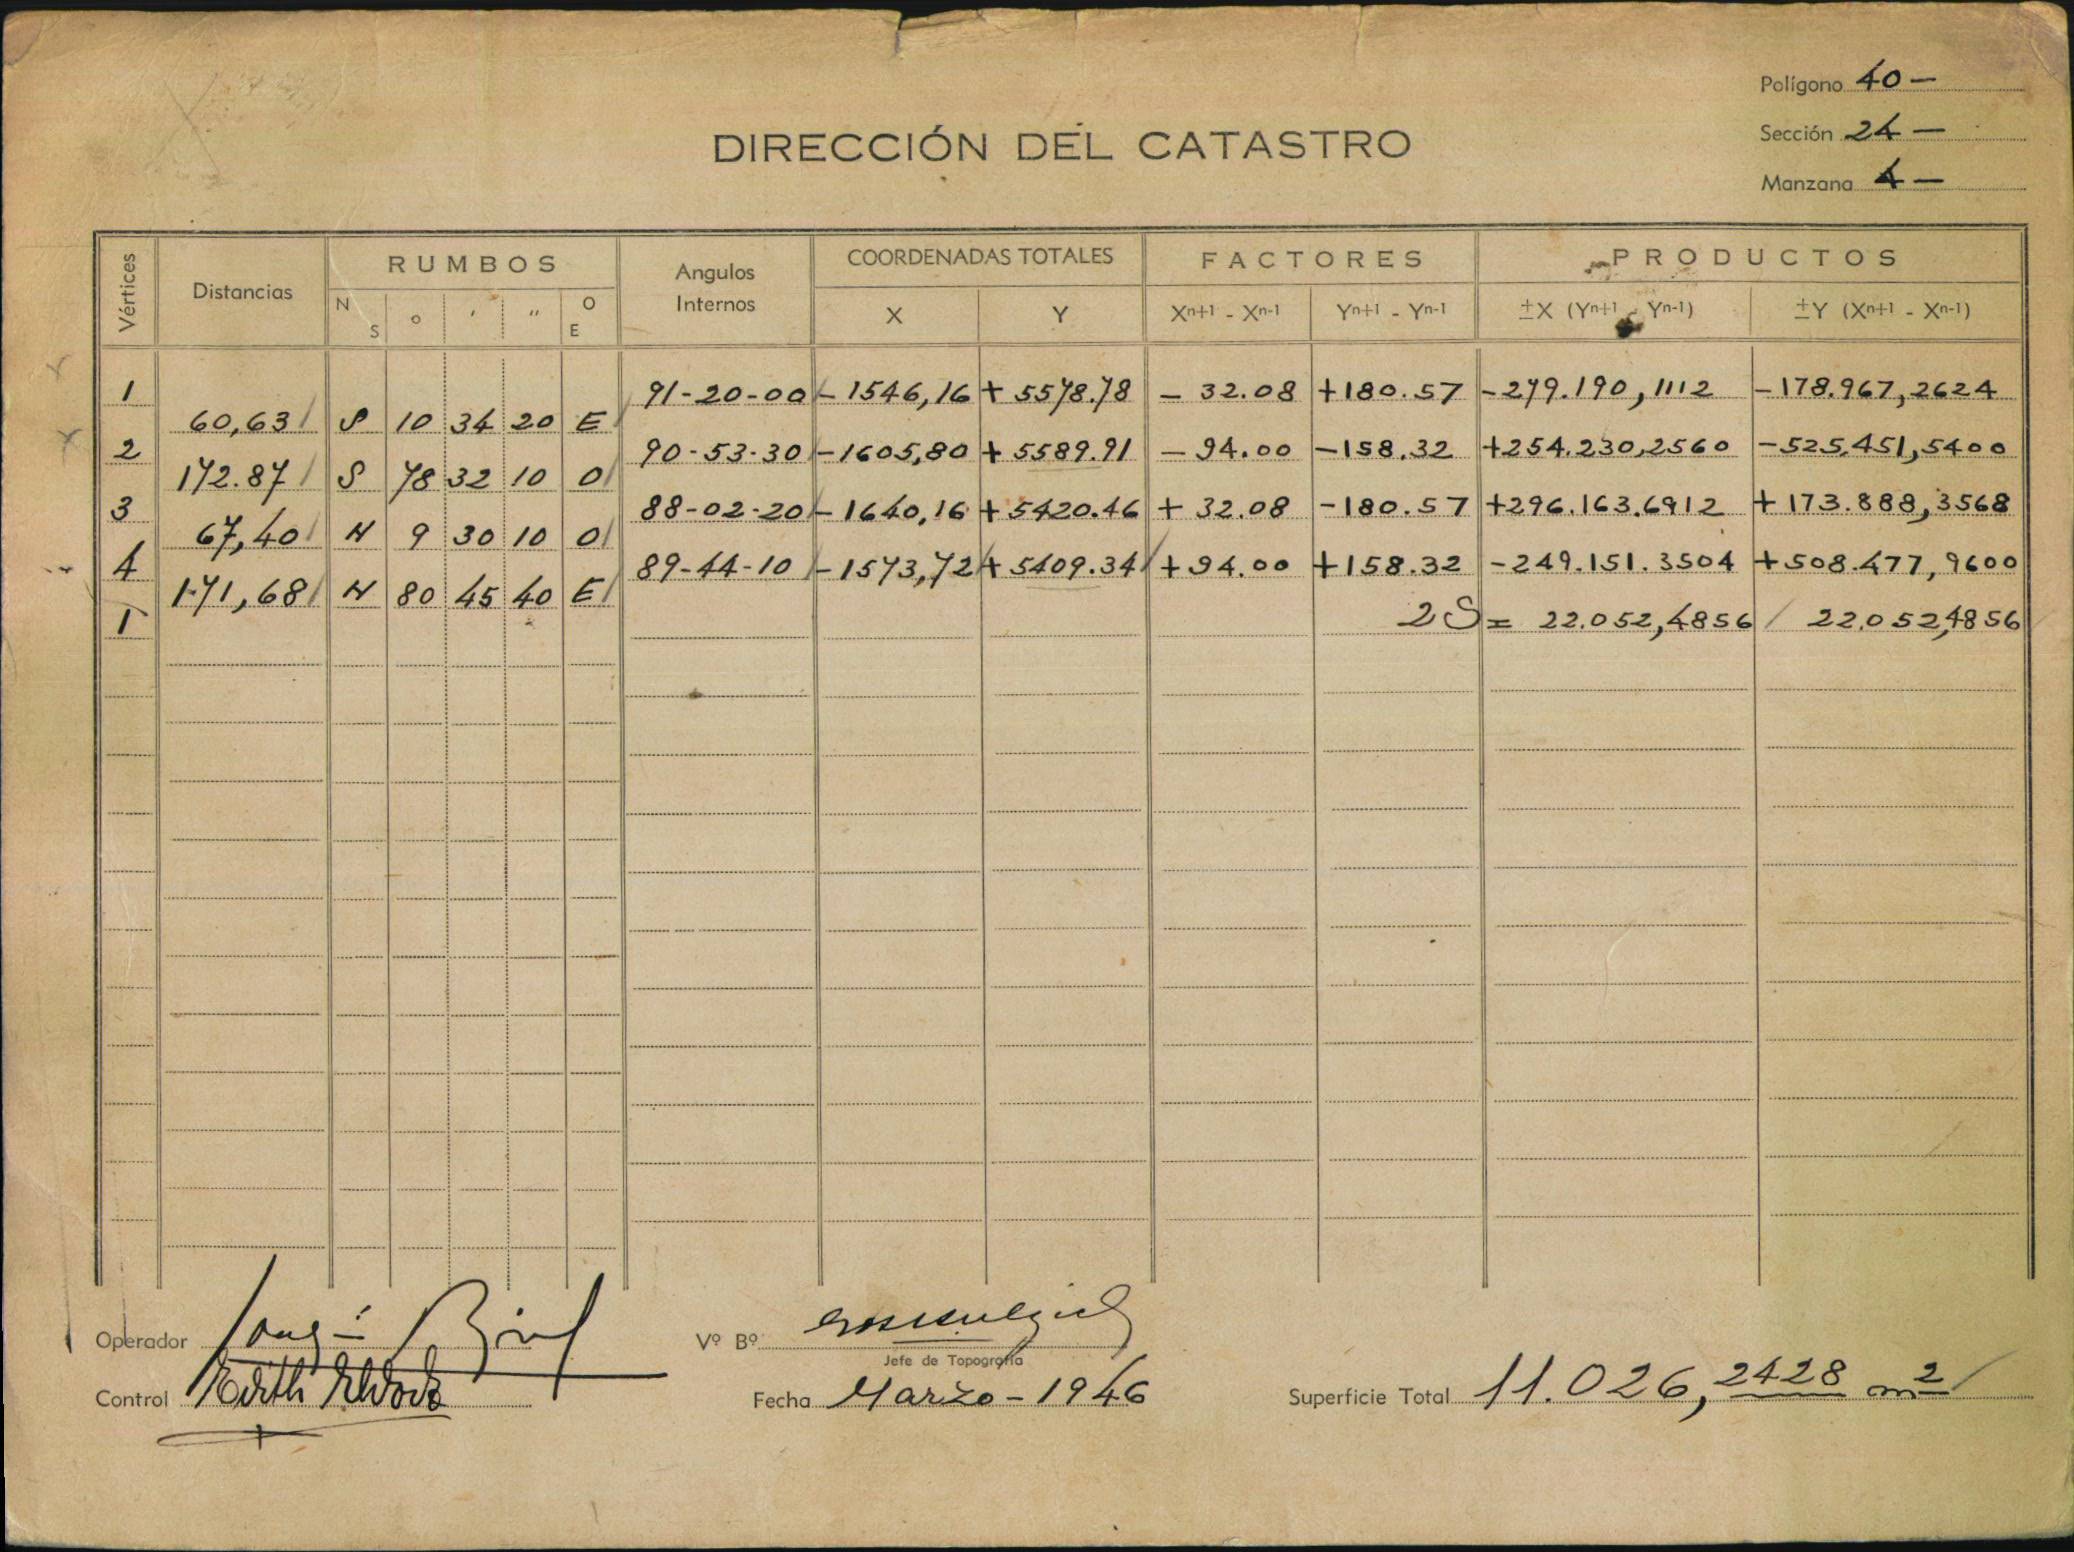 Polígono 40 -
Sección 24 -
Manzana 4 -
DIRECCIÓN DEL CATASTRO
Vértices Distancias RUMBOS Angulos Internos COORDENADAS TOTALES FACTORES PRODUCTOS
N S ° ' " O E X Y Xn+1 - Xn-1 Yn+1 - Yn-1 ±X (Yn+1 - Yn-1) ±Y (Xn+1 - Xn-1)
1 91-20-00 - 1546,16 + 5578.78 - 32.08 +180.57 -279.190,1112 -178.967,2624
60,63 S 10 34 20 E
2 90-53-30 -1605,80 + 5589.91 - 94.00 -158.32 +254.230,2560 -525.451,5400
172.87 S 78 32 10 O
3 88-02-20 - 1640,16 + 5420.46 + 32.08 -180.57 +296.163.6912 + 173.888,3568
67,40 N 9 30 10 O
4 89-44-10 - 1573,72 + 5409.34 + 94.00 +158.32 -249.151.3504 +508.477,9600
171,68 N 80 45 40 E
1 2S = 22.052,4856 22.052,4856
Operador
Vº Bº
Jefe de Topografía
Control Edith
Fecha Marzo - 1946
Superficie Total 11.026,2428 m2